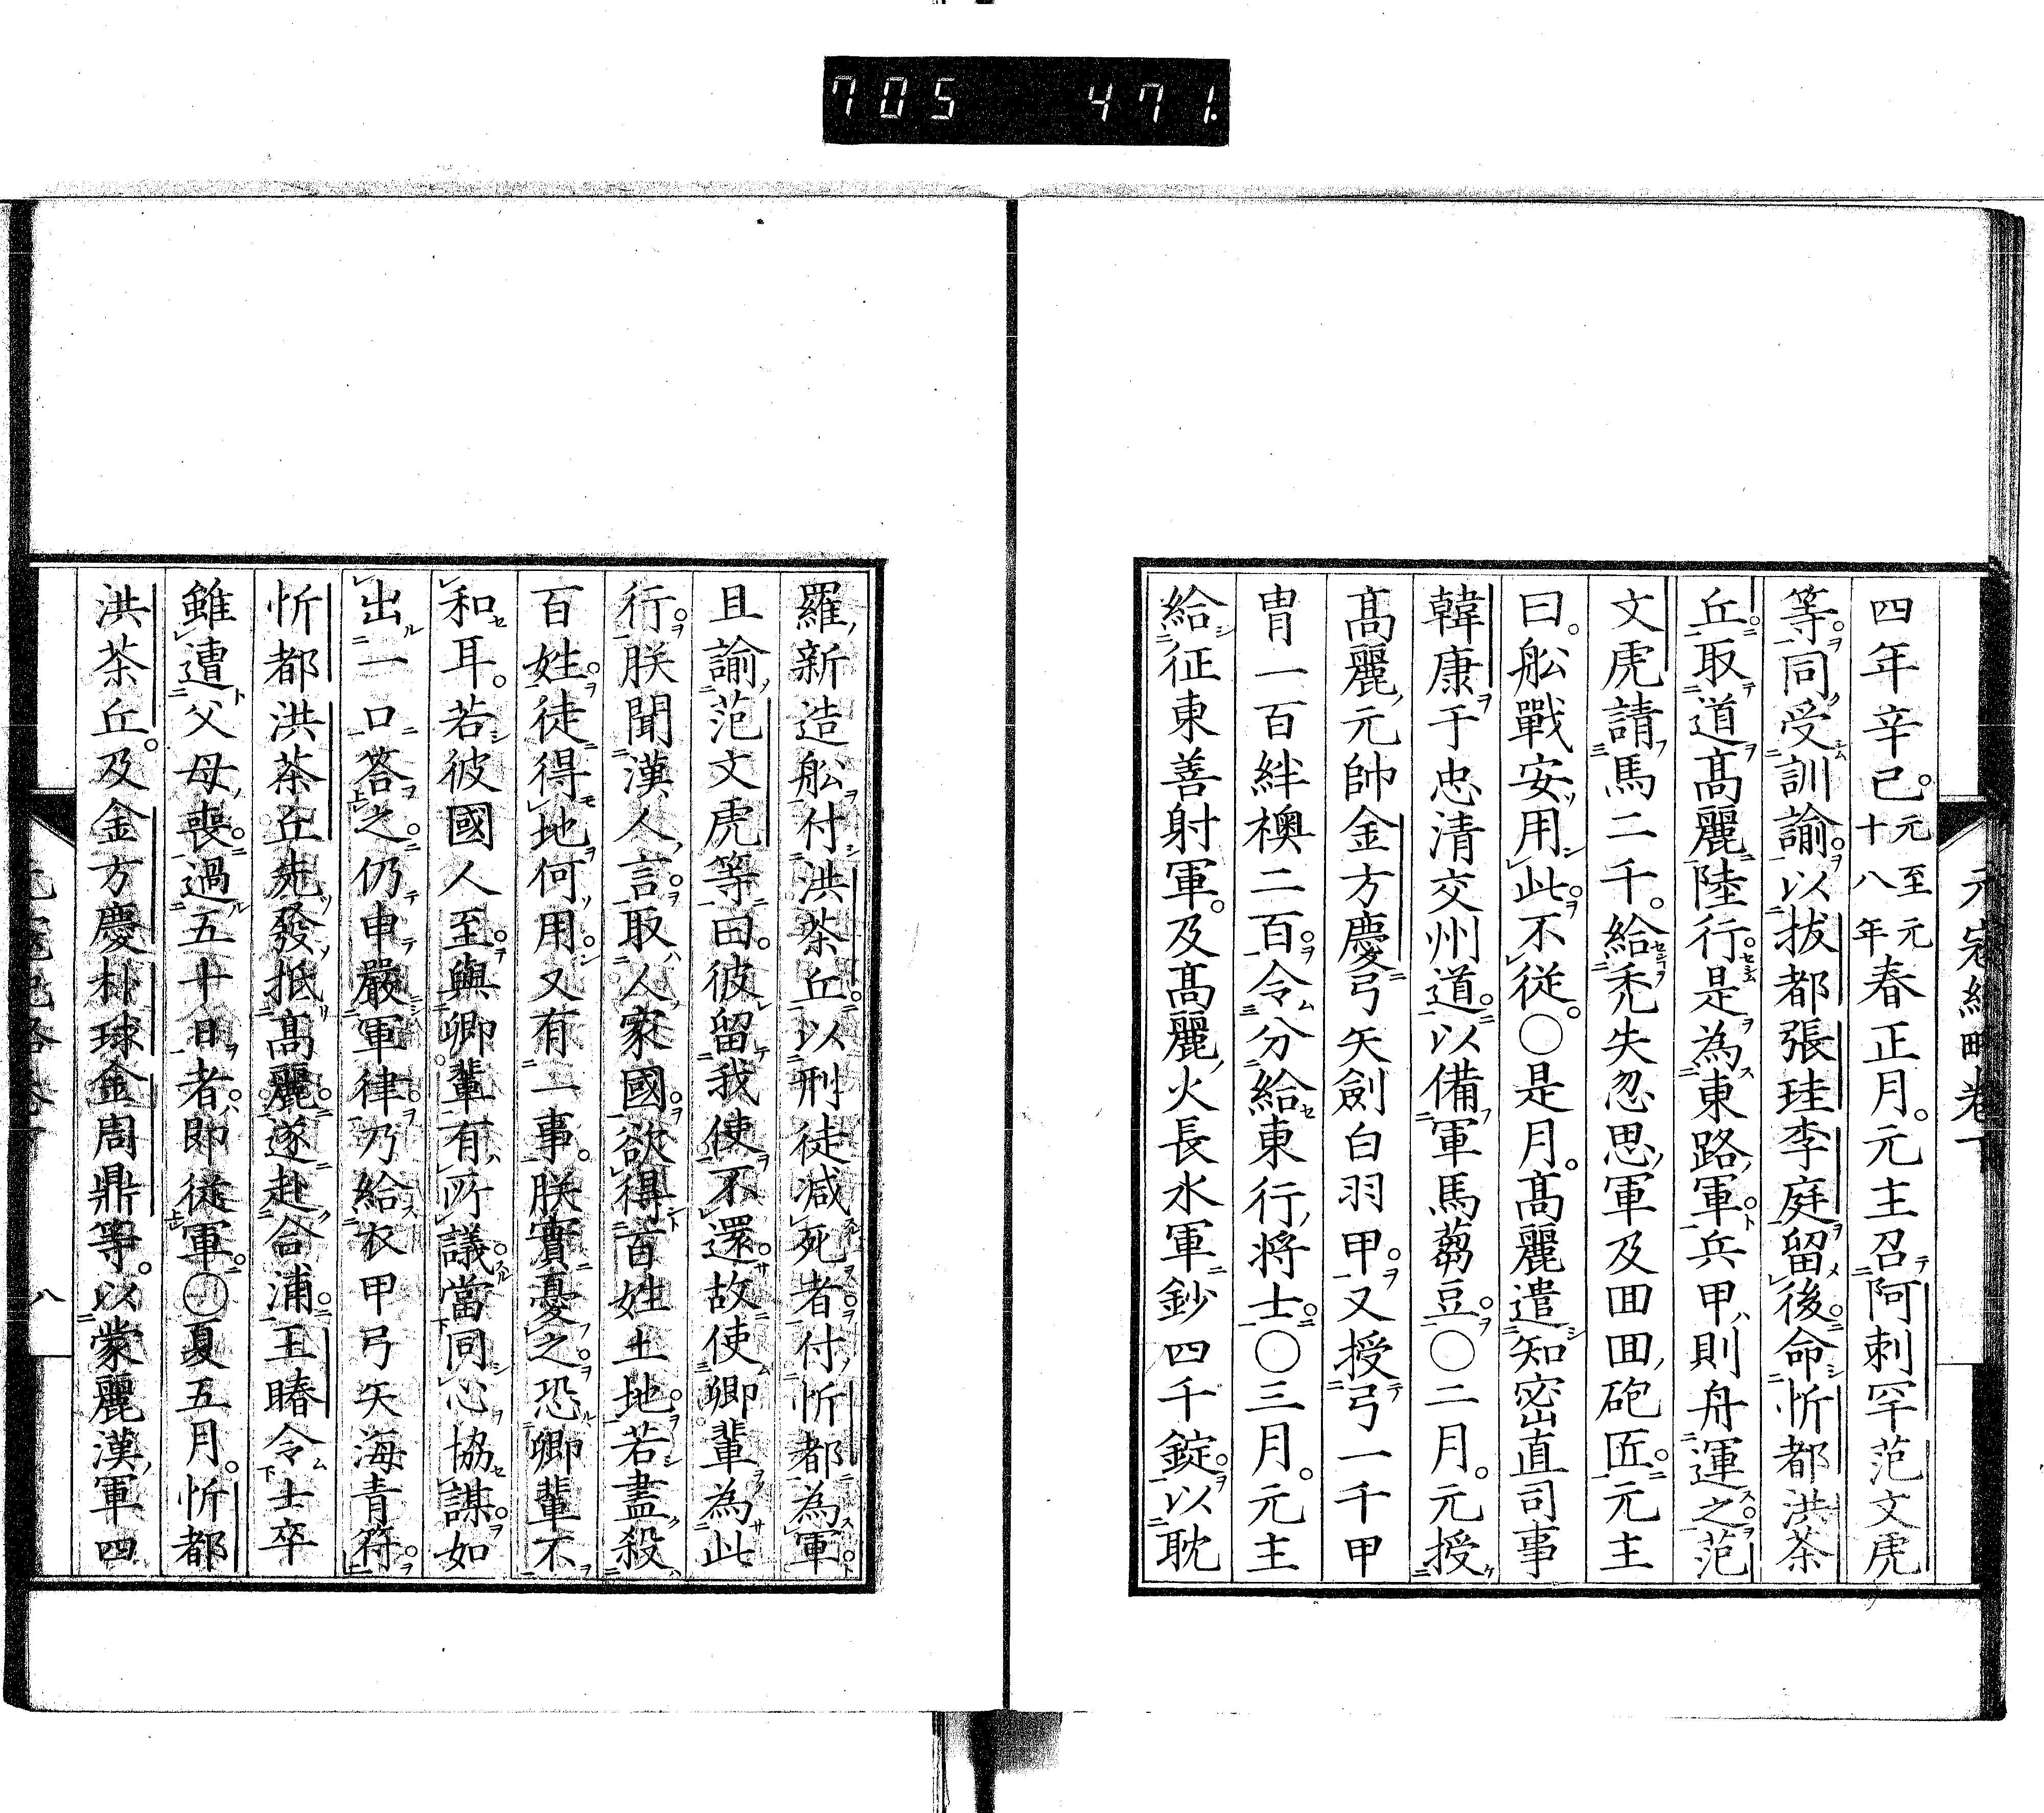 705 471.
元寇紀畧卷下
四年辛己。元至元十八年春正月。元主召阿剌罕范文虎
等同受訓諭。以拔都張珪李庭留後命忻都洪茶
丘。取道髙麗陸行。是為東路軍。兵甲則舟運之。范
文虎請馬二千。給禿失忽思軍及囬囬砲匠。元主
曰。舩戰安用此不從。〇是月。髙麗遣知宻直司事
韓康于忠清交州道。以備軍馬蒭豆。〇二月。元授
髙麗元帥金方慶弓矢劍白羽甲。又授弓一千甲
胄一百絆襖二百。令分給東行將士。〇三月。元主
給征東善射軍。及髙麗火長水軍鈔四千錠。以耽
羅新造舩付洪茶丘。以刑徒減死者付忻都為軍。
且諭范文虎等曰。彼留我使不還。故使卿輩為此
行。朕聞漢人言。取人家國。欲得百姓土地。若盡殺
百姓。徒得地何用。又有一事。朕實憂之。恐卿輩不
和耳。若彼國人至。與卿輩有所議。當同心協謀。如
出一口答之。仍申嚴軍律。乃給衣甲弓矢海青符。
忻都洪茶丘先發抵髙麗。遂赴合浦。王賰令士卒
雖遭父母喪。過五十日者。即從軍。〇夏五月。忻都
洪茶丘。及金方慶朴球金周鼎等。以蒙麗漢軍四
八